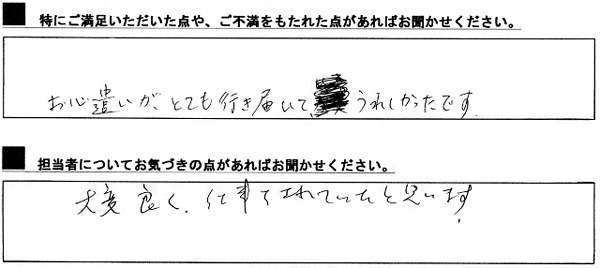 ■ 特にご満足いただいた点や、ご不満をもたれた点があればお聞かせください。
お心遣いが、とても行き届いて うれしかったです。
■ 担当者についてお気づきの点があればお聞かせください。
大変良く、仕事をされていたと思います。